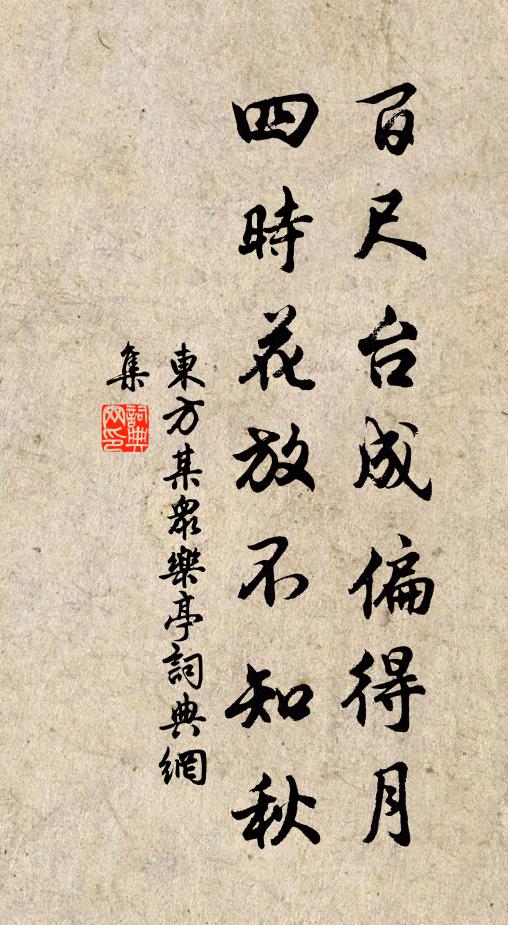 百尺台成偏得月
四時花放不知秋
東方某眾樂亭詞典網
集
詞典網印